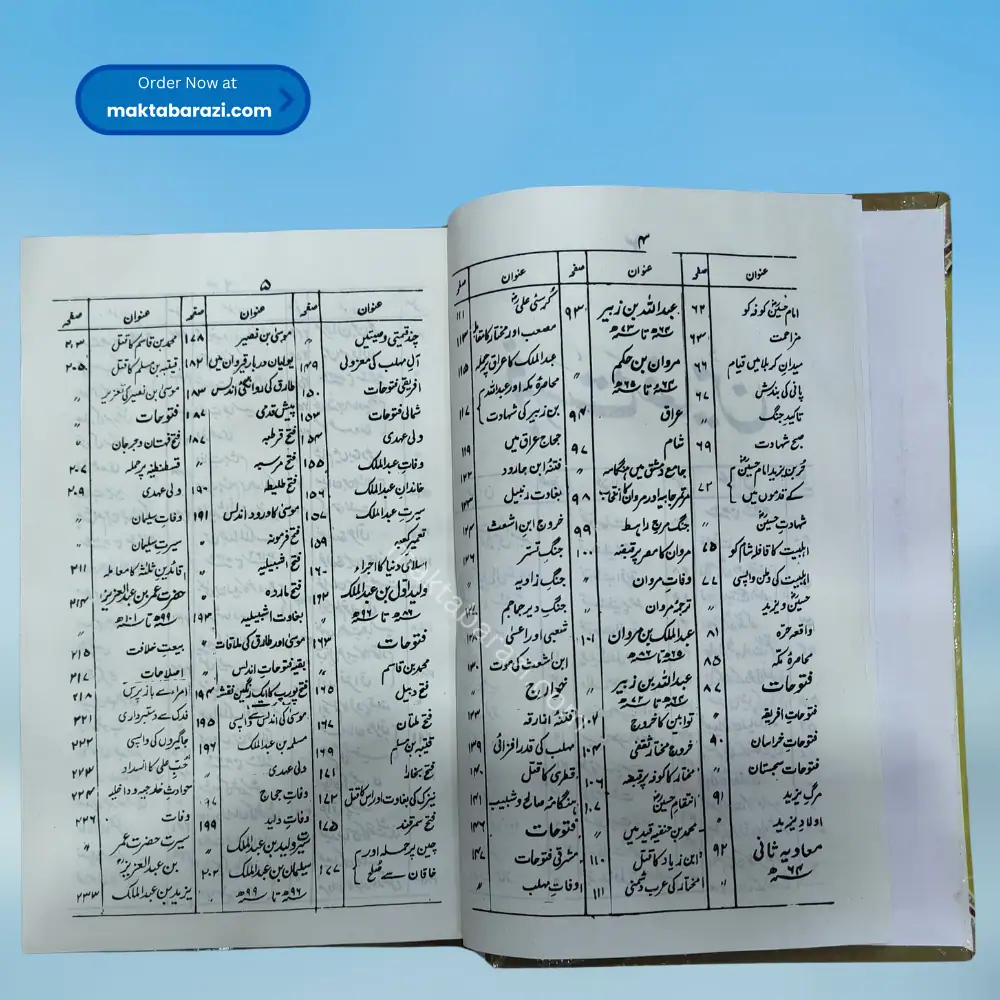 Order Now at
maktabarazi.com
۴
عنوان صفحہ
امام حسینؓ کوفہ کو ۶۲
مزاحمت ۶۳
میدانِ کربلا میں قیام ۶۶
پانی کی بندش ۶۷
تاکیدِ جنگ "
صبح شہادت ۶۹
حُر بن یزید امام حسینؓ
کے قدموں میں ۷۲
شہادتِ حسینؓ "
اہلبیت کا قافلہ شام کو ۷۵
اہلبیت کی وطن واپسی ۷۷
حسینؓ و یزید "
واقعہ حرّہ ۸۱
محاصرۂ مکہ ۸۵
فتوحات ۸۷
فتوحاتِ افریقہ "
فتوحاتِ خراسان ۹۰
فتوحات سجستان "
مرگِ یزید ۹۱
اولادِ یزید "
معاویہ ثانی ۹۲
۶۴ھ "
عنوان صفحہ
عبداللہ بن زبیر ۹۳
تا ۷۳ھ
مروان بن حکم "
۶۴ھ تا ۶۵ھ
عراق ۹۴
شام ۹۷
جامع دمشق میں ہنگامہ
مؤتمر جابیہ اور مروان کا انتخاب ۹۸
جنگ مرج راہط ۹۹
مروان کا مصر پر قبضہ ۱۰۰
وفاتِ مروان "
ترجمۂ مروان "
عبدالملک بن مروان ۱۰۱
۶۵ھ تا ۸۶ھ
عبداللہ بن زبیر "
تا ۷۳ھ
توابین کا خروج ۱۰۲
خروجِ مختار ثقفی ۱۰۴
مختار کا کوفہ پر قبضہ ۱۰۶
انتقامِ حسینؓ ۱۰۷
محمد بن حنفیہ قید میں "
ابن زیاد کا قتل ۱۱۰
مختار کی عرب دشمنی ۱۱۱
عنوان صفحہ
کُرسیٔ علیؓ ۱۱۱
مصعب اور مختار کا مقابلہ ۱۱۳
عبدالملک کا عراق پر حملہ ۱۱۵
محاصرۂ مکہ اور عبداللہ
بن زبیر کی شہادت ۱۱۷
حجاج عراق میں ۱۱۹
فتنۂ ابن جارود ۱۲۲
بغاوت رتبیل ۱۲۳
خروجِ ابن اشعث ۱۲۴
جنگِ تستر ۱۲۶
جنگِ زاویہ "
جنگِ دیر جماجم
شعبی اور اعشی ۱۲۸
ابن اشعث کی موت ۱۳۰
خوارج "
فتنۂ ازارقہ
مہلب کی قدر افزائی ۱۳۹
قطری کا قتل ۱۴۰
ہنگامہ صالح و شبیب ۱۴۱
فتوحات ۱۴۶
مشرقی فتوحات ۱۴۷
وفات مہلب "
۵
عنوان صفحہ
چند قیمتی وصیتیں "
آلِ مہلب کی معزولی ۱۴۹
افریقی فتوحات ۱۵۰
شمالی فتوحات ۱۵۳
ولی عہدی ۱۵۴
وفاتِ عبدالملک ۱۵۵
خاندانِ عبدالملک ۱۵۶
سیرتِ عبدالملک ۱۵۷
تعمیرِ کعبہ ۱۵۹
اسلامی دنیا کا اجراء ۱۶۰
ولید اول بن عبدالملک ۱۶۲
۸۶ھ تا ۹۶ھ
فتوحات ۱۶۳
محمد بن قاسم "
فتح دیبل ۱۶۵
فتح ملتان ۱۶۷
قتیبہ بن مسلم ۱۶۹
فتح بخارا ۱۷۱
نیزک کی بغاوت اور اس کا قتل ۱۷۲
فتح سمرقند ۱۷۵
چین پر حملہ اور
خاقان سے صُلح ۱۷۷
عنوان صفحہ
موسیٰ بن نصیر ۱۷۸
یولیان دربارِ قیروان میں ۱۸۲
طارق کی روانگیٔ اندلس ۱۸۳
پیش قدمی ۱۸۷
فتح قرطبہ ۱۸۷
فتح مرسیہ "
فتح طلیطلہ ۱۹۰
موسیٰ کا ورود اندلس ۱۹۱
فتح قرمونہ "
فتح اشبیلیہ "
فتح ماردہ
بغاوت اشبیلیہ ۱۹۳
موسیٰ اور طارق کی ملاقات "
بقیہ فتوحاتِ اندلس "
فتح یورپ کا ایک رنگین نقشہ ۱۹۴
موسیٰ کی اندلس سے واپسی ۱۹۵
مسلمہ بن عبدالملک ۱۹۶
ولی عہدی "
وفاتِ حجاج
وفاتِ ولید ۱۹۹
سیرتِ ولید بن عبدالملک "
سلیمان بن عبدالملک ۲۰۲
۹۶ھ تا ۹۹ھ
عنوان صفحہ
محمد بن قاسم کا قتل ۲۰۳
قتیبہ بن مسلم کا قتل ۲۰۵
موسیٰ بن نصیر کی تعزیر "
فتوحات "
فتح قہستان و جرجان "
قسطنطنیہ پر حملہ ۲۰۷
ولی عہدی ۲۰۹
وفاتِ سلیمان "
سیرتِ سلیمان "
قائدینِ ثلثہ کا معاملہ ۲۱۱
حضرت عمر بن عبدالعزیز ۲۱۴
۹۹ھ تا ۱۰۱ھ
بیعتِ خلافت ۲۱۵
اصلاحات ۲۱۷
امراء سے باز پرس ۲۱۸
فدک سے دستبرداری ۲۲۱
جاگیروں کی واپسی ۲۲۲
سبِّ علی کا انسداد ۲۲۳
حوادث خارجیہ و داخلیہ ۲۲۴
وفات ۲۲۶
سیرت حضرت عمر
بن عبدالعزیزؒ "
یزید بن عبدالملک ۲۳۳
maktabarazi.com